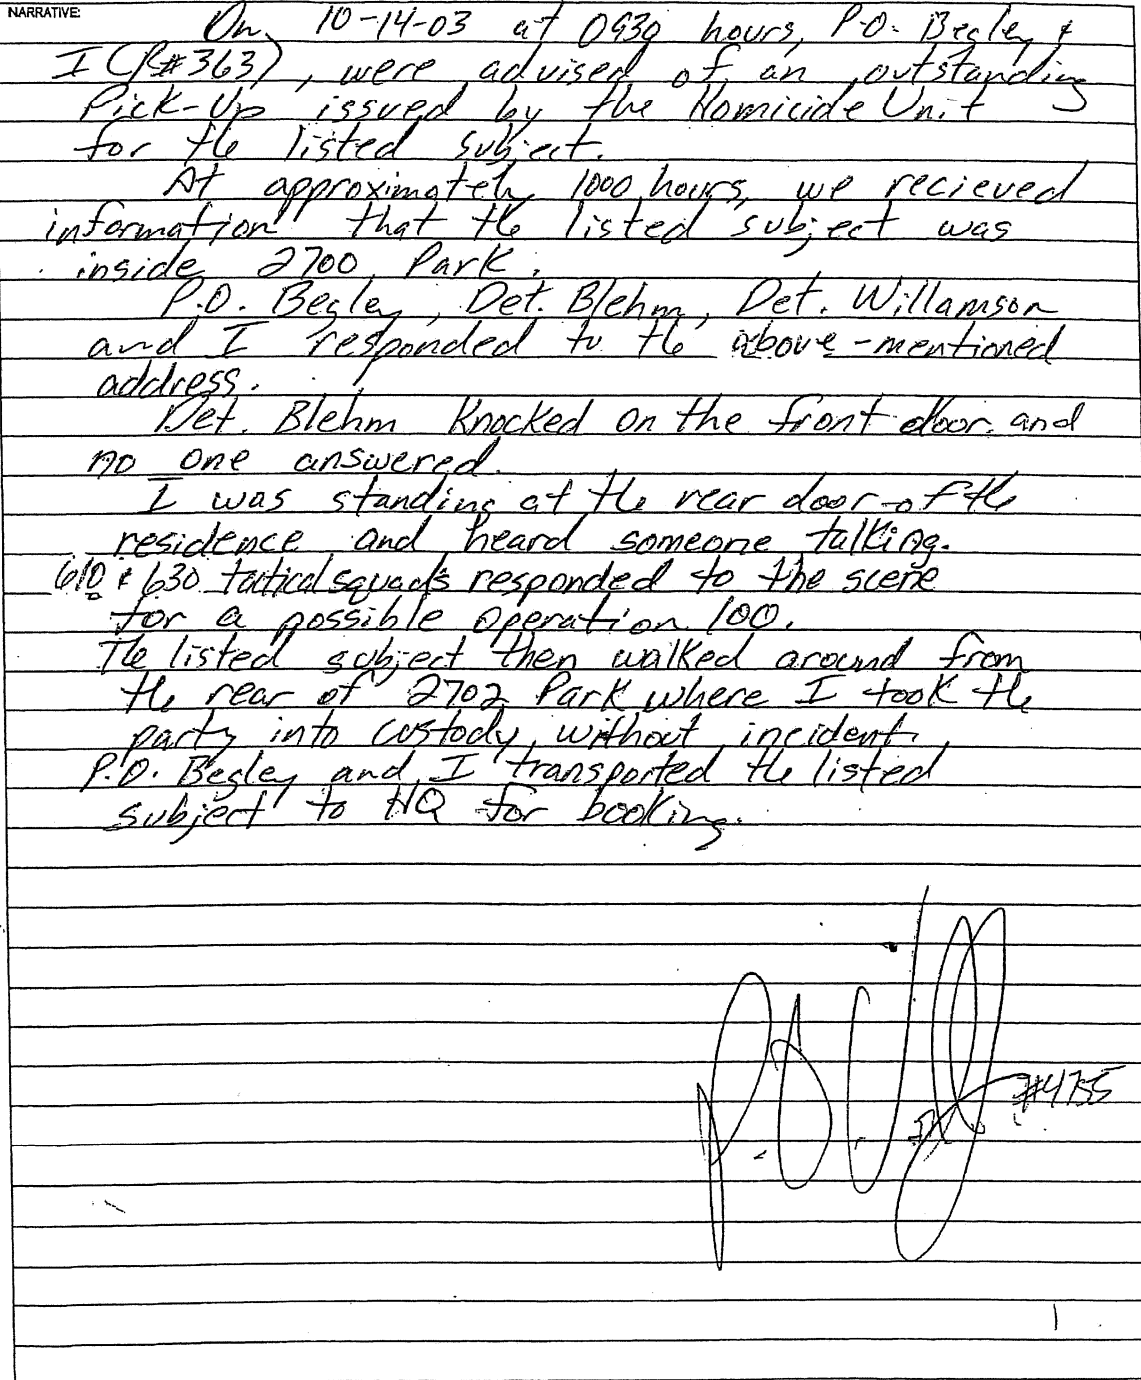 NARRATIVE:
On 10-14-03 at 0930 hours, P.O. Begley &
I (R#363), were advised of an outstanding
Pick-Up issued by the Homicide Unit
for the listed subject.
At approximately 1000 hours, we recieved
information that the listed subject was
inside 2700 Park.
P.O. Begley, Det. Blehm, Det. Willamson
and I responded to the above-mentioned
address.
Det. Blehm Knocked on the front door and
no one answered.
I was standing at the rear door of the
residence and heard someone talking.
610 & 630 tactical squads responded to the scene
for a possible Operation 100.
The listed subject then walked around from
the rear of 2702 Park where I took the
party into custody without incident.
P.O. Begley and I transported the listed
subject to HQ for booking.
#4755